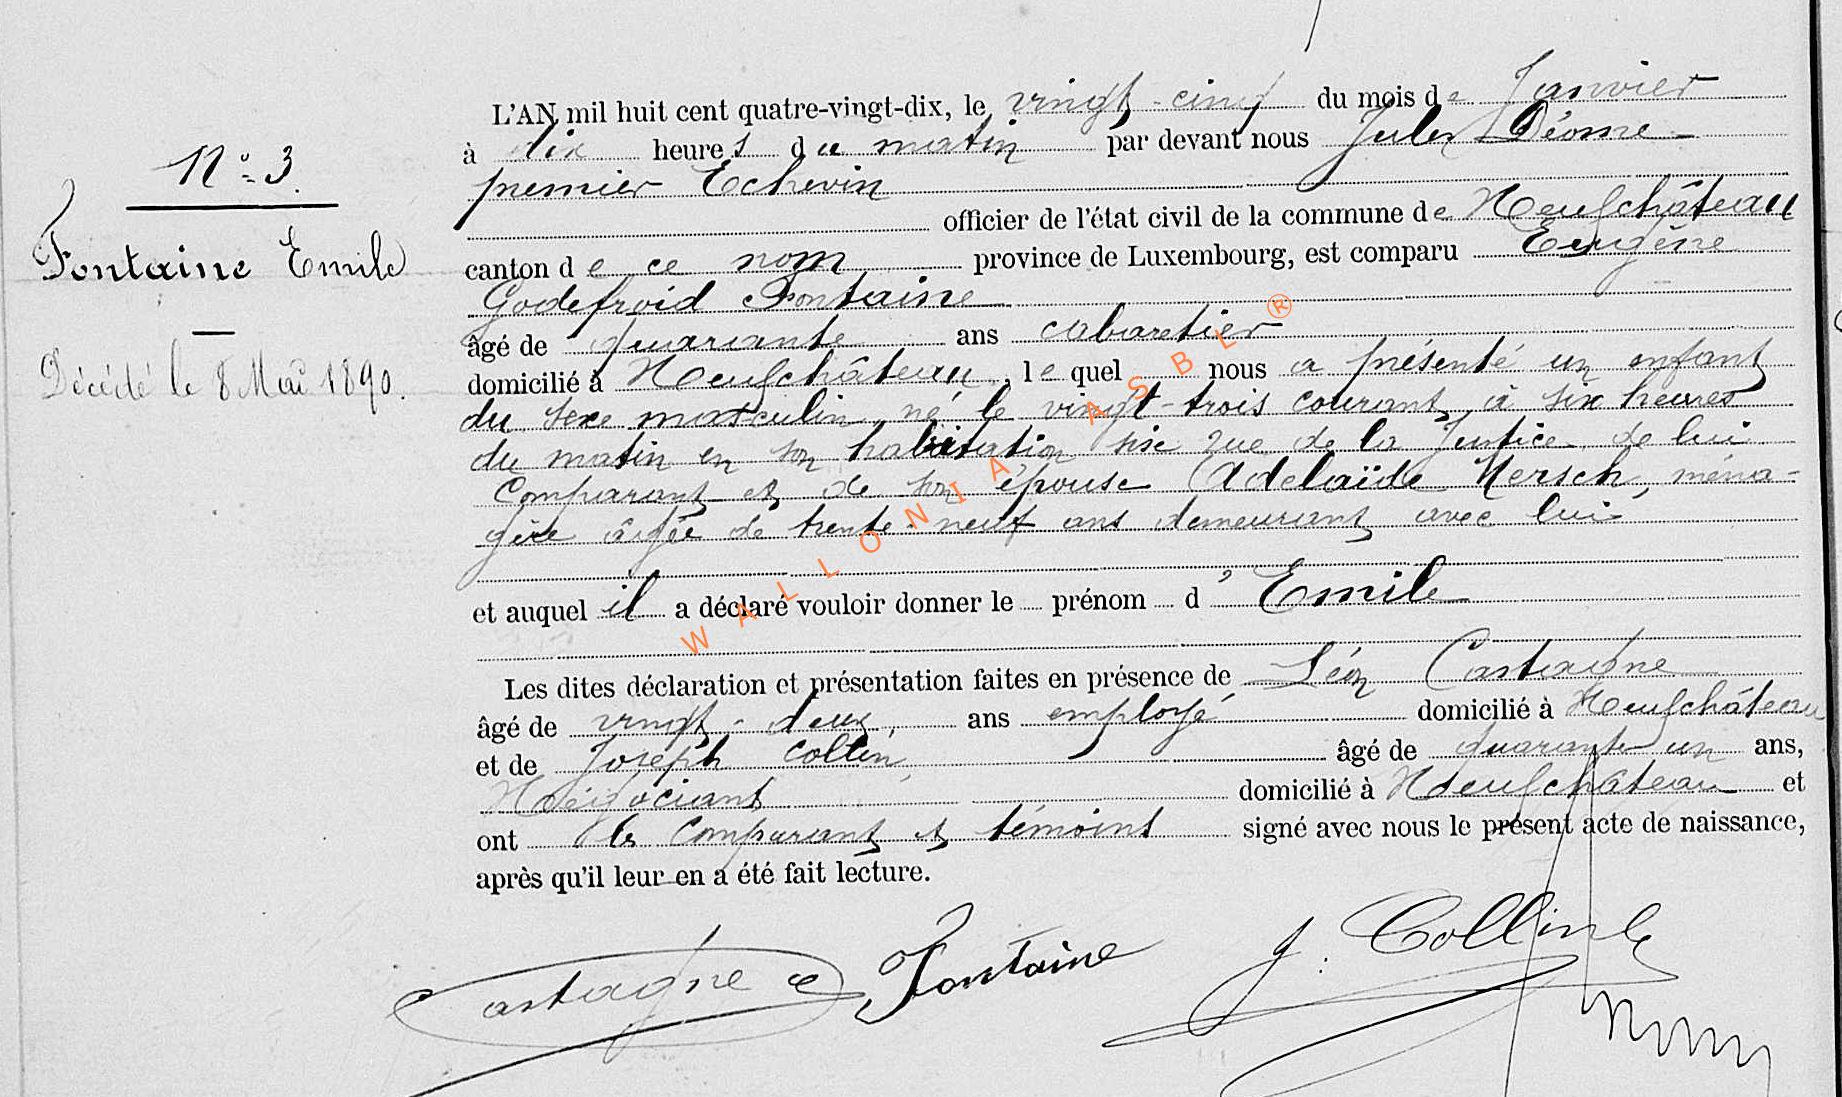 N° 3.
Fontaine Emile
Décédé le 8 Mai 1890.
L'AN mil huit cent quatre-vingt-dix, le vingt-cinq du mois de Janvier
à dix heures du matin par devant nous Jules Déome
premier Echevin
officier de l'état civil de la commune de Neufchâteau
canton de ce nom province de Luxembourg, est comparu Eugène
Godefroid Fontaine
âgé de quarante ans cabaretier
domicilié à Neufchâteau, lequel nous a présenté un enfant
du sexe masculin, né le vingt-trois courant, à six heures
du matin en son habitation sise rue de la Justice de lui
Comparant et de son épouse Adelaïde Mersch, ména-
gère âgée de trente-neuf ans demeurant avec lui
et auquel il a déclaré vouloir donner le prénom d'Emile
Les dites déclaration et présentation faites en présence de Léon Castaigne
âgé de vingt-deux ans employé domicilié à Neufchâteau
et de Joseph Collin, âgé de quarante un ans,
Négociant domicilié à Neufchâteau et
ont les comparant et témoins signé avec nous le présent acte de naissance,
après qu'il leur en a été fait lecture.
Castagne Fontaine J. Collin
WALLONIA ASBL ®